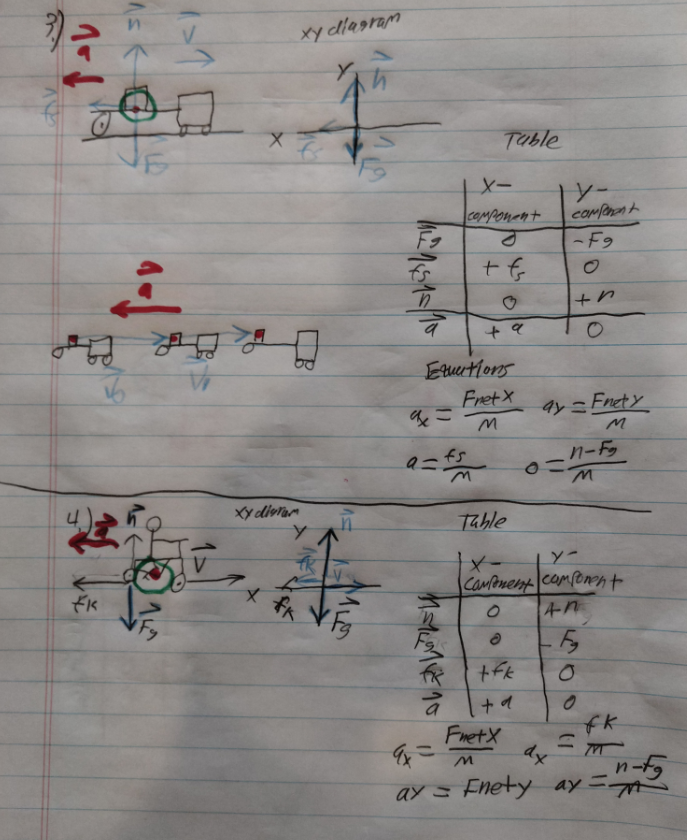 3.)
a
n
v
xy diagram
y
n
fs
Fg
x
fs
Fg
Table
x- component
y- component
Fg 0 -Fg
fs + fs 0
n 0 + n
a + a 0
a
v
Equations
ax = Fnetx/m ay = Fnety/m
a = fs/m 0 = n-Fg/m
4.)
a
n
v
fk
Fg
xy diagram
y
n
fk
v
x
fk
Fg
Table
x- component
y- component
n 0 +n
Fg 0 -Fg
fk +fk 0
a +a 0
ax = Fnetx/m ax = fk/m
ay = Fnety ay = n-Fg/m